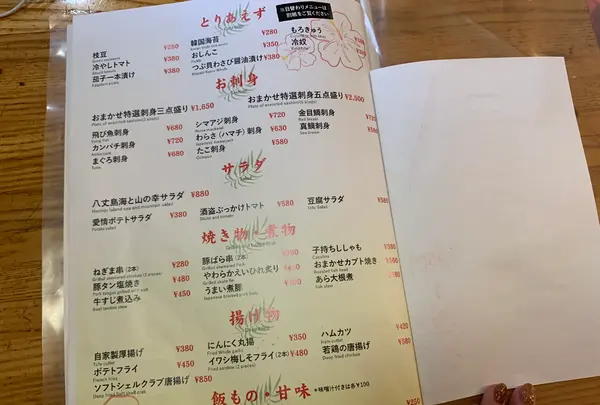 とりあえず
※日替わりメニューは
別紙をご覧ください
枝豆 ¥250
冷やしトマト ¥380
茄子一本漬け ¥380
韓国海苔 ¥280
おしんこ ¥350
つぶ貝わさび醤油漬け ¥380
もろきゅう
冷奴
お刺身
おまかせ特選刺身三点盛り ¥1,650
Plate of assorted sashimi(3 kinds)
おまかせ特選刺身五点盛り ¥2,500
Plate of assorted sashimi(5 kinds)
飛び魚刺身 ¥680
カンパチ刺身 ¥720
まぐろ刺身 ¥680
シマアジ刺身 ¥730
わらさ（ハマチ）刺身 ¥630
たこ刺身 ¥580
Octopus
金目鯛刺身
Red bream
真鯛刺身
Sea bream
サラダ
八丈島海と山の幸サラダ ¥880
愛情ポテトサラダ ¥380
Potato salad
酒盗ぶっかけトマト ¥580
豆腐サラダ
Tofu Salad
焼き物・煮物
ねぎま串（2本） ¥280
豚タン塩焼き ¥480
牛すじ煮込み ¥450
豚ばら串（2本）
やわらかエイひれ炙り ¥480
うまい煮豚 ¥450
子持ちししゃも
おまかせカブト焼き
Roasted fish head
あら大根煮
fish stew
揚げ物
自家製厚揚げ ¥380
ポテトフライ ¥450
French fries
ソフトシェルクラブ唐揚げ ¥850
Deep fried Soft shell crab
にんにく丸揚 ¥350
Fried Whole garlic
イワシ梅しそフライ（2本） ¥480
ハムカツ ¥420
若鶏の唐揚げ ¥580
Deep fried chicken
飯もの・甘味
＊味噌汁付きは各¥100